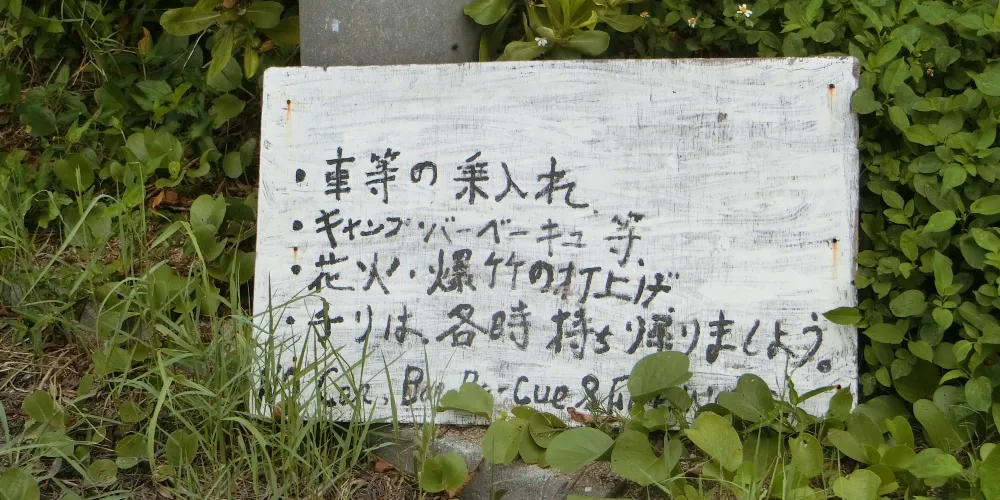 ・車等の乗入れ
・キャンプ・バーベーキュ等
・花火・爆竹の打上げ
・チリは、各時持ち帰りましよう。
Car, Ba Be-Cue &